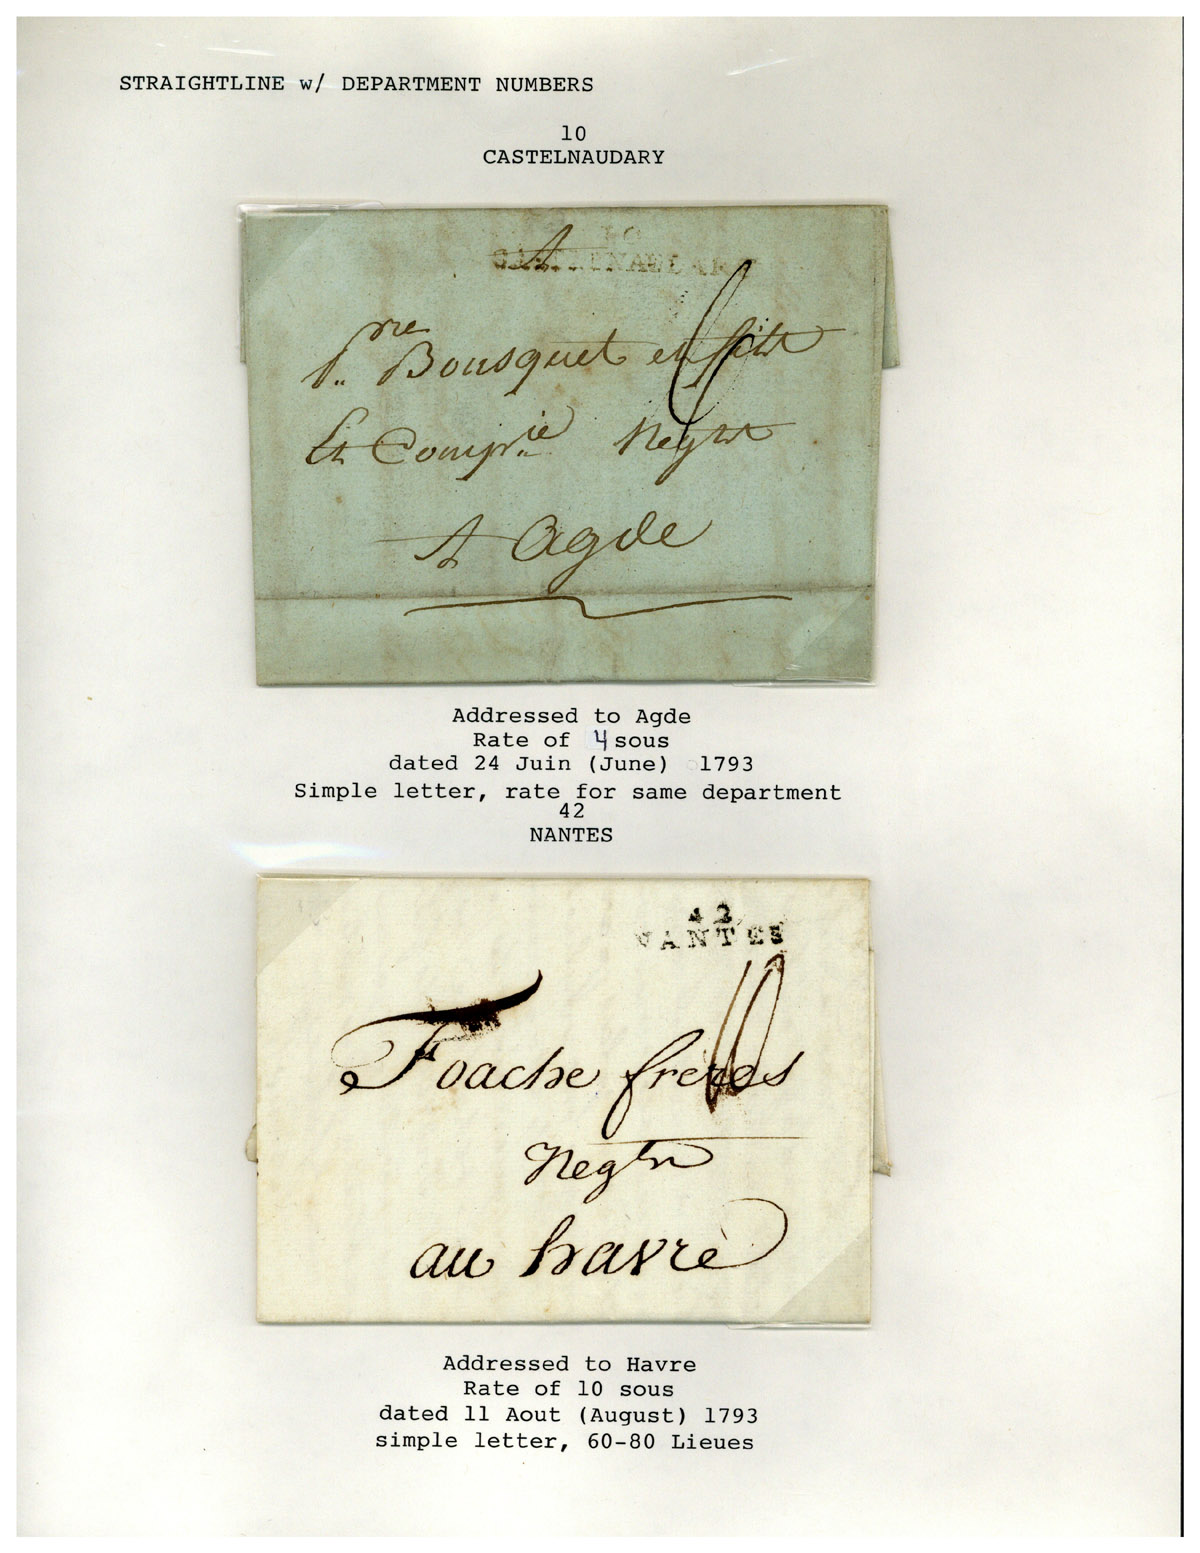 STRAIGHTLINE w/ DEPARTMENT NUMBERS
10
CASTELNAUDARY
10
CASTELNAUDARY
A
Pre Bousquet et fils
Et Compie Negts
A Agde
Addressed to Agde
Rate of 4 sous
dated 24 Juin (June) 1793
Simple letter, rate for same department
42
NANTES
42
NANTES
10
Foache freres
Negtn
au havre
Addressed to Havre
Rate of 10 sous
dated 11 Aout (August) 1793
simple letter, 60-80 Lieues